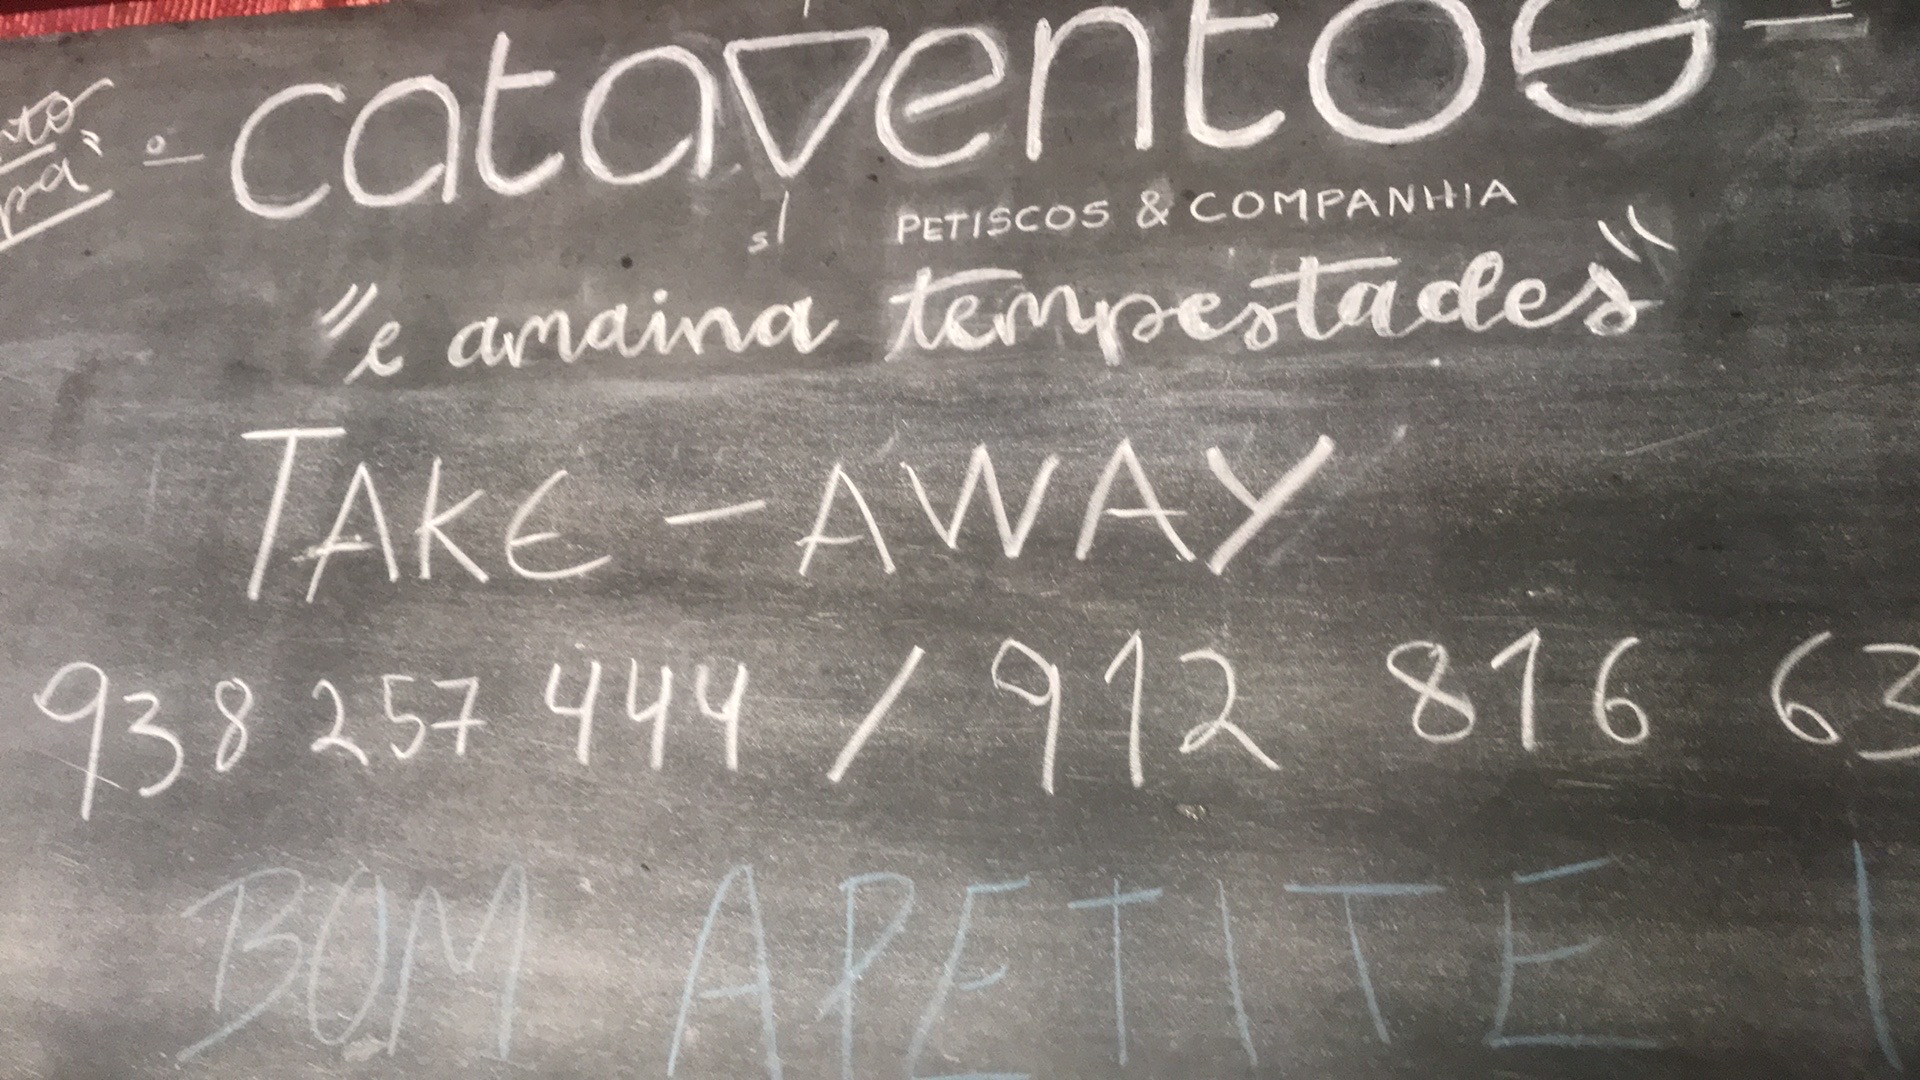 cataventos
PETISCOS & COMPANHIA
"e amaina tempestades"
TAKE-AWAY
938 257 444 / 912 816 63
BOM APETITE !